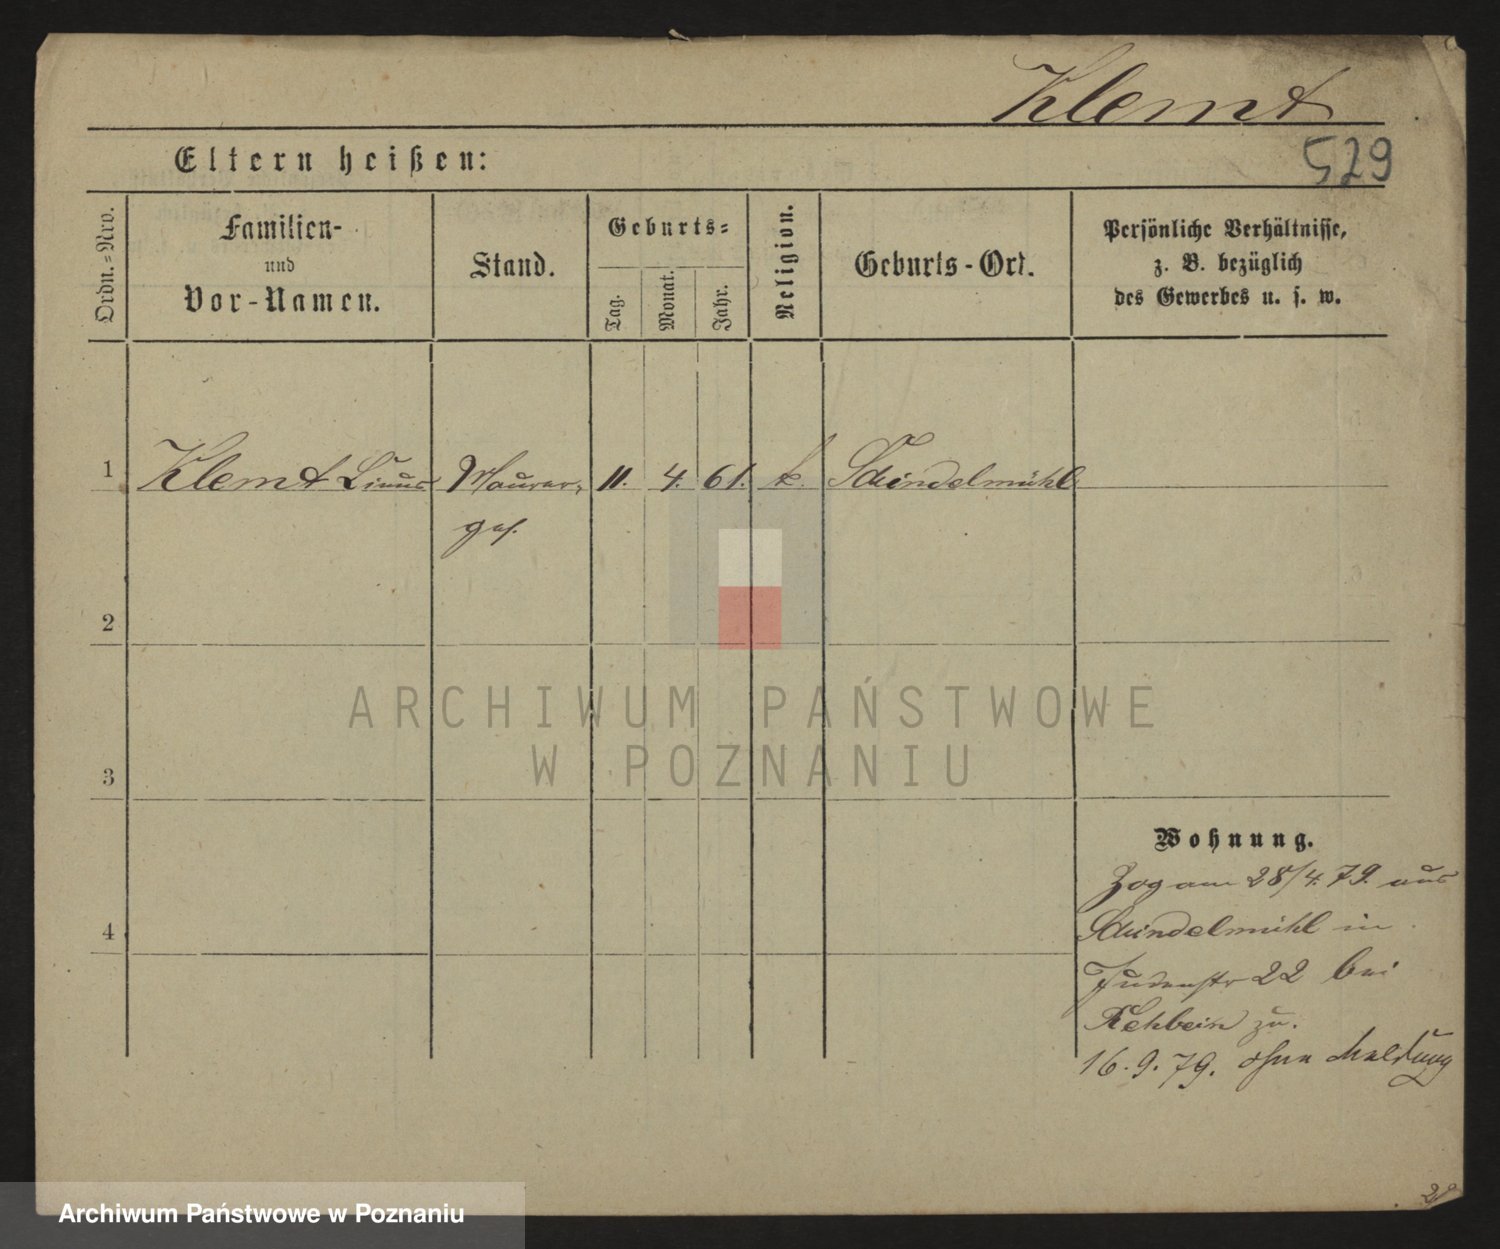 Klemt
529
Eltern heißen:
Ordn.-Nro.
Familien-
und
Vor-Namen.
Stand.
Geburts-
Tag.
Monat.
Jahr.
Religion.
Geburts-Ort.
Persönliche Verhältnisse,
z. B. bezüglich
des Gewerbes u. s. w.
1 Klemt Linus Maurer- 11. 4. 61. k. Schindelmühl
ges.
2
3
4
Wohnung.
Zog am 28/4.79. aus
Schindelmühl in
Judenstr 22 bei
Rehbein zu.
16.9.79. ohne Meldung
ARCHIWUM PAŃSTWOWE
W POZNANIU
Archiwum Państwowe w Poznaniu